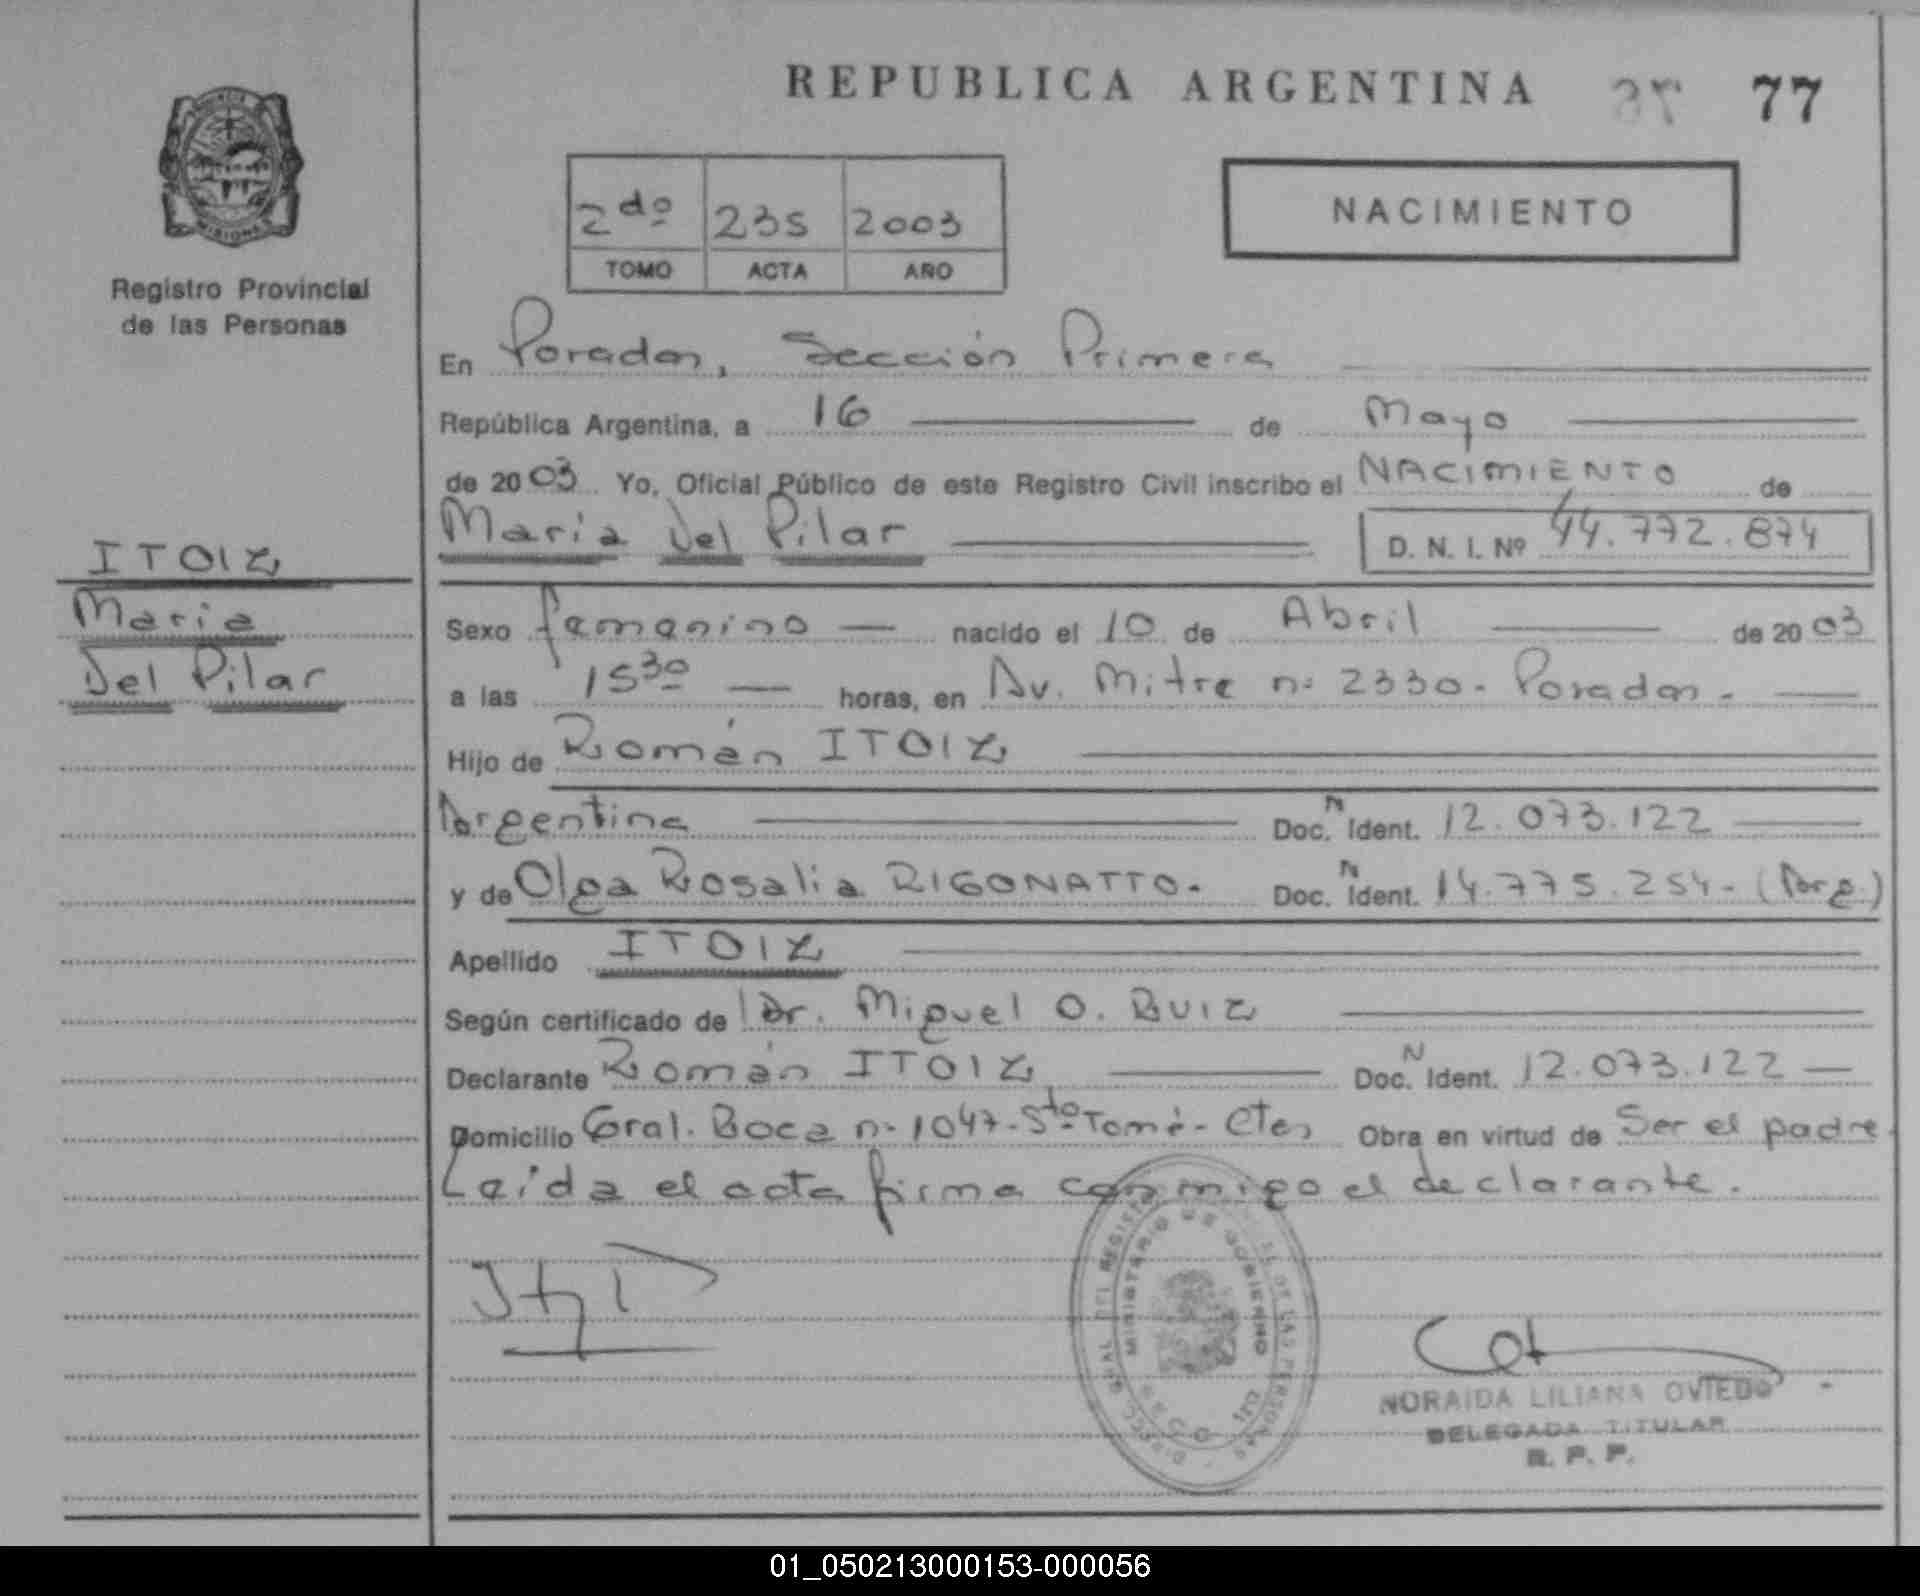 REPUBLICA ARGENTINA 77
NACIMIENTO
2do 235 2003
TOMO ACTA AÑO
PROVINCIA DE
MISIONES
Registro Provincial
de las Personas
ITOIZ
María
Del Pilar
En Posadas, Sección Primera
República Argentina, a 16 de Mayo
de 2003 Yo, Oficial Público de este Registro Civil inscribo el NACIMIENTO de
María Del Pilar D. N. I. Nº 44.772.874
Sexo femenino nacido el 10 de Abril de 2003
a las 15 30 horas, en Av. Mitre nº 2330 - Posadas -
Hijo de Román ITOIZ
Argentina Doc. N Ident. 12.073.122
y de Olga Rosalia RIGONATTO. Doc. N Ident. 14.775.254 - (Arg.)
Apellido ITOIZ
Según certificado de Dr. Miguel O. RUIZ
Declarante Román ITOIZ Doc. N Ident. 12.073.122
Domicilio Gral. Roca nº 1047 - Sto Tomé - Ctes Obra en virtud de Ser el padre.
Leída el acta firma conmigo el declarante.
MINISTERIO DE GOBIERNO
NORAIDA LILIANA OVIEDO
DELEGADA TITULAR
R. P. P.
01_050213000153-000056